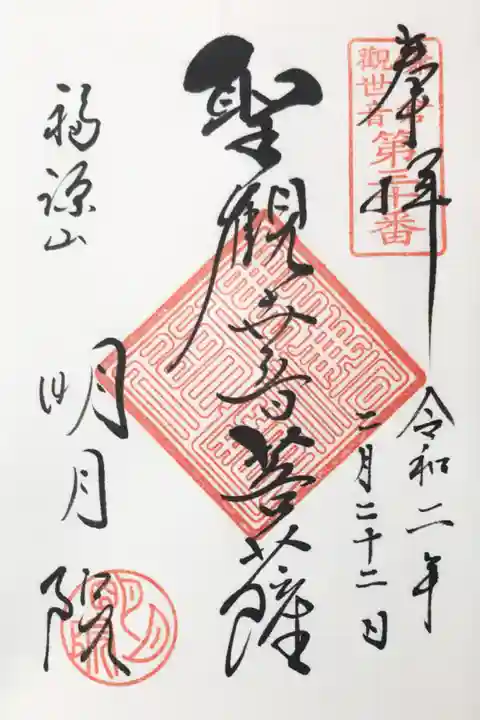 奉拝
觀世音
第三十番
令和二年
二月二十二日
聖観世音菩薩
福源山
明月院